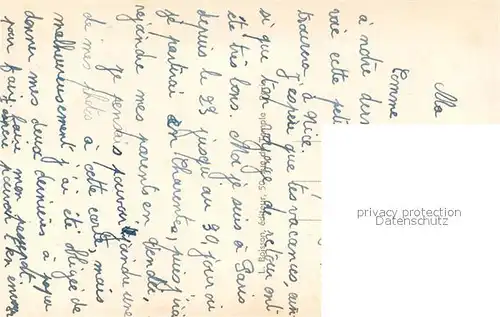 Ma
Comme
à notre dern
voie cette peti
trouvera, à nice.
J'espère que tes vacances, ain
si que ton voyage de retour ont
été très bons. Moi je suis à Paris
depuis le 23 jusqu'au 30, jour où
je partirai en Charente, puis j'irai
rejoindre mes parents en Vendée.
Je pensais pouvoir joindre une
de mes photos à cette carte, mais
malheureusement j'ai été obligée de
donner mes deux dernières à papa
pour faire faire mon passeport
pouvoir t'en envoy
privacy protection
Datenschutz